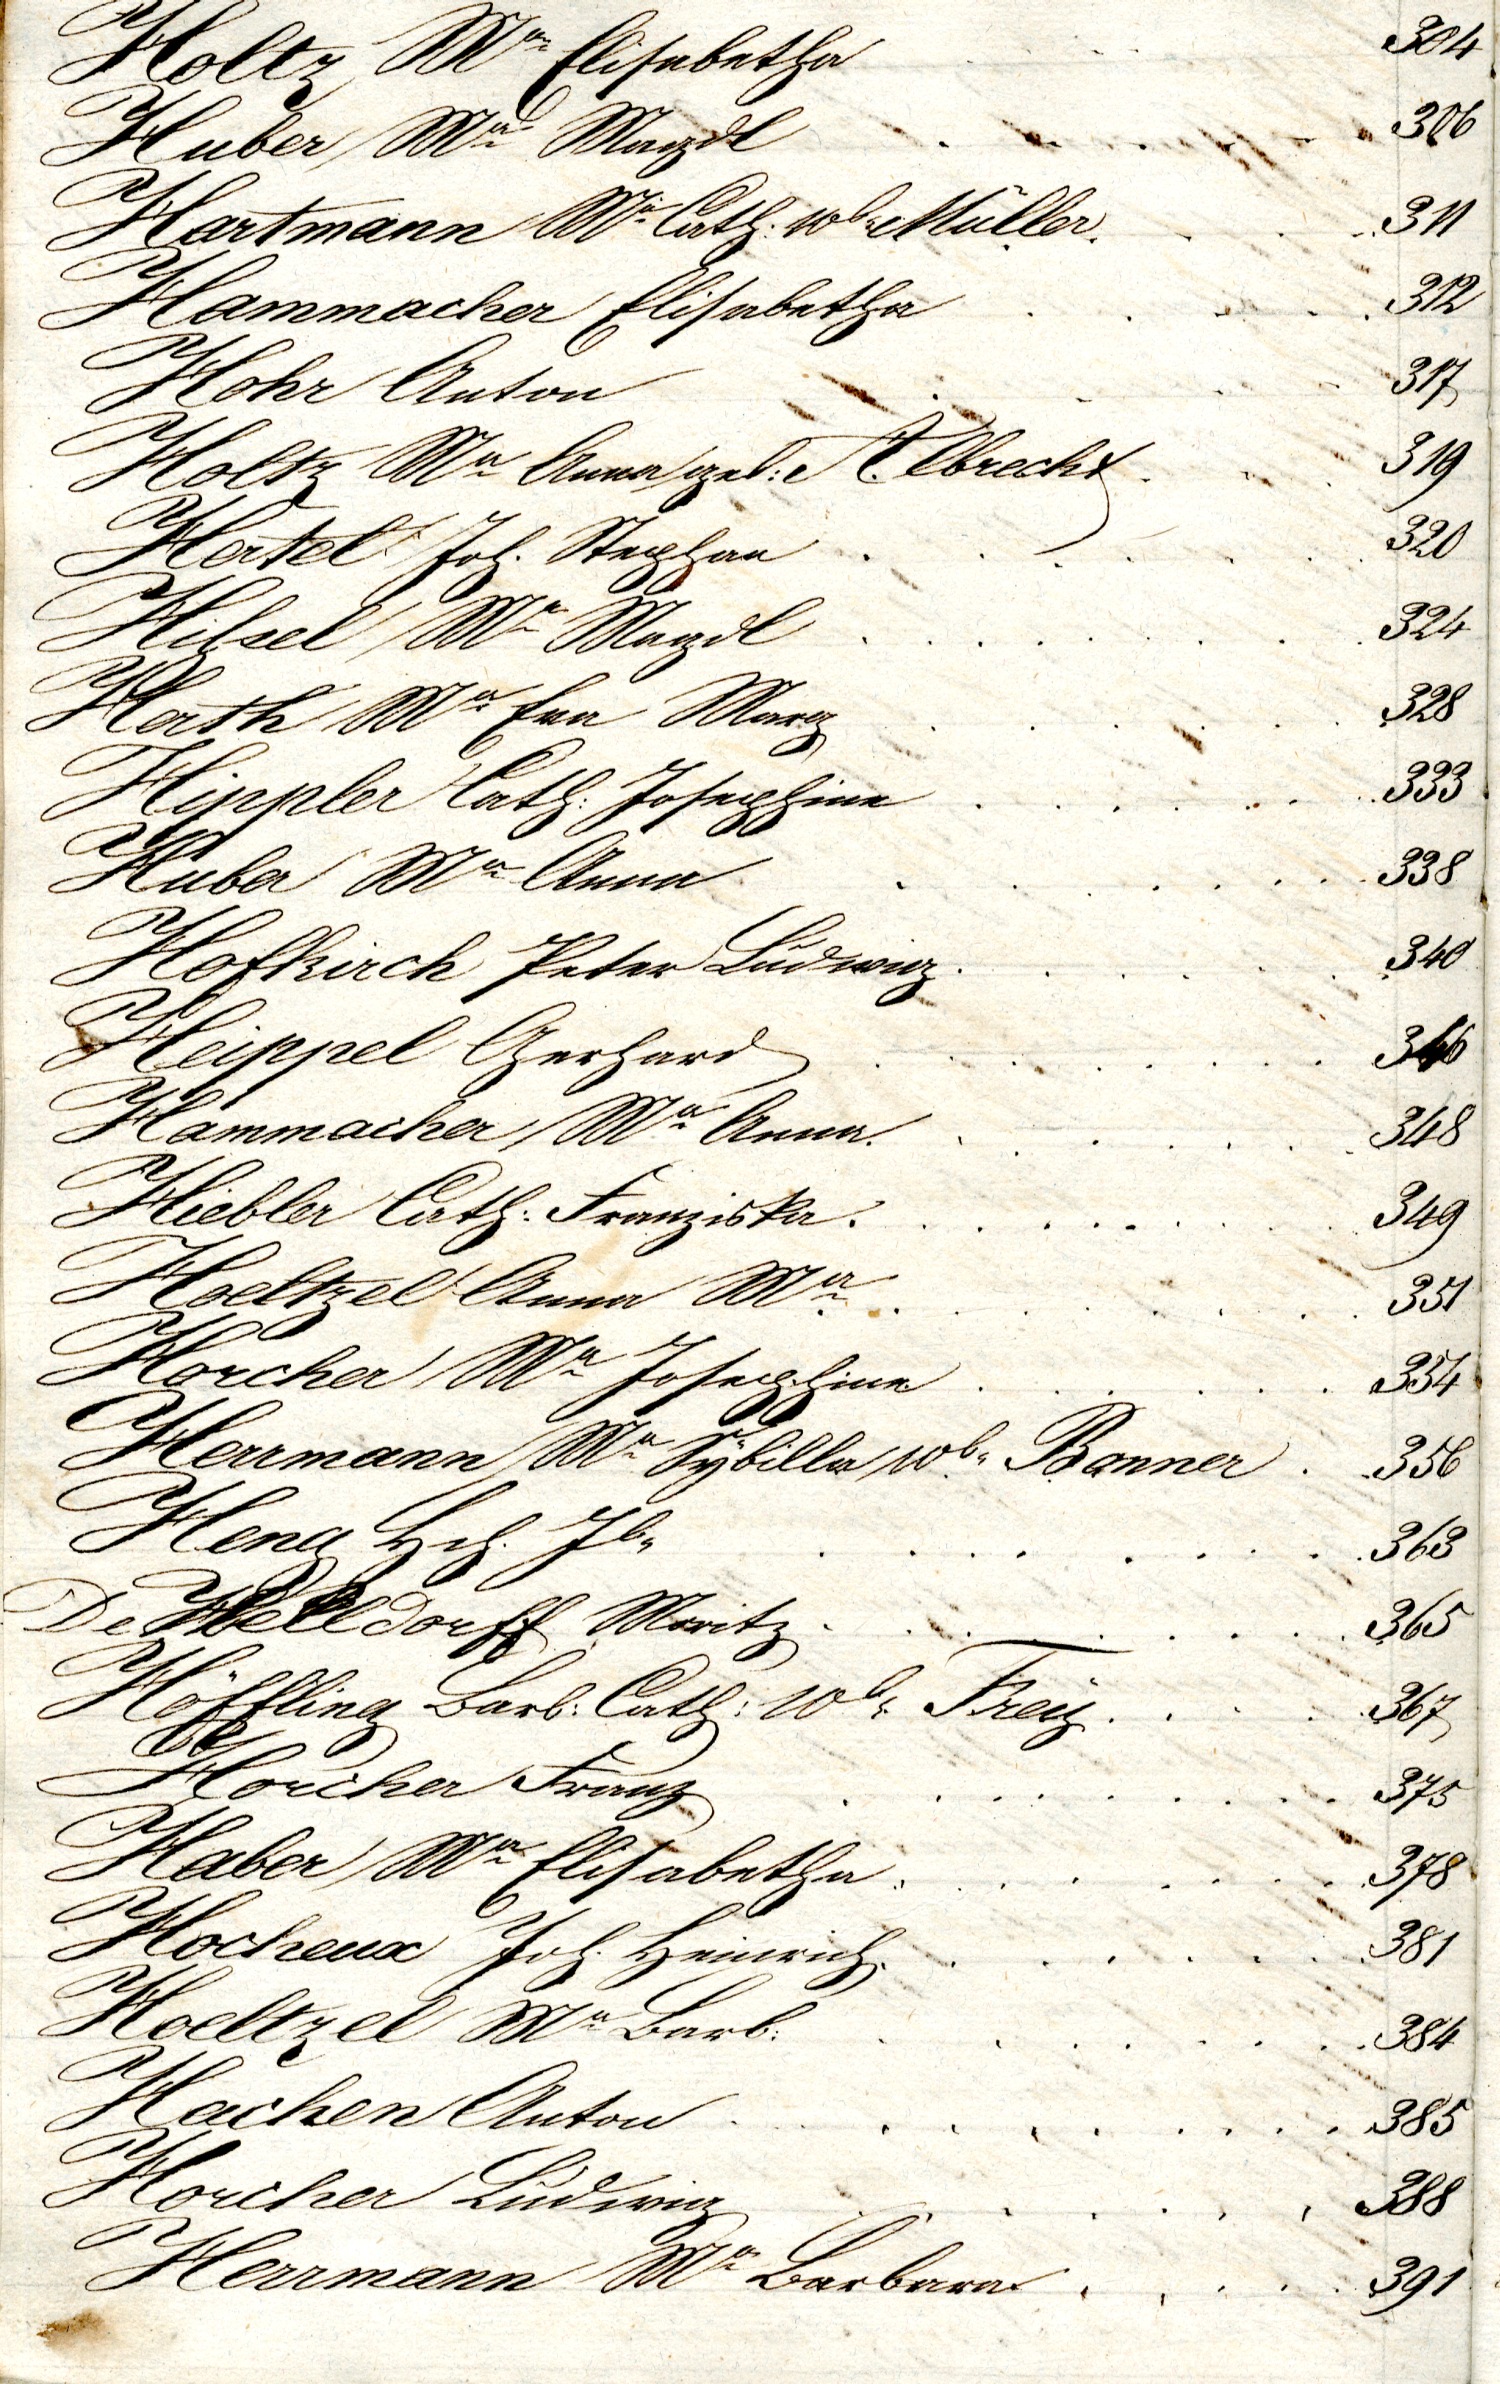 Holtz Ma Elisabetha 304
Huber Ma Magdl 306
Hartmann Ma Cath: wbr Müller. 311
Hammacher Elisabetha 312
Hohr Anton 317
Holtz Ma Anna geb: Albrecht 319
Hertel Joh. Stephan 320
Hilsel Ma Magdl 324
Herth Ma Eva Marg 328
Hippler Cath: Josephine 333
Huber Ma Anna 338
Hofkirch Peter Ludwig 340
Heippel Gerhard 346
Hammacher Ma Anna. 348
Hiebler Cath: Franziska. 349
Hoeltzel Anna Ma 351
Horcher Ma Josephine 354
Herrmann Ma Sÿbilla wbr Banner 356
Heng Hch. Jb. 363
De Helldorff Moritz 365
Höffling Barb: Cath: wbr Freÿ 367
Horcher Franz 375
Haber Ma Elisabetha 378
Hocheux Joh. Heinrich 381
Hoeltzel Ma Barb: 384
Hachen Anton 385
Horcher Ludwig 388
Herrmann Ma Barbara 391